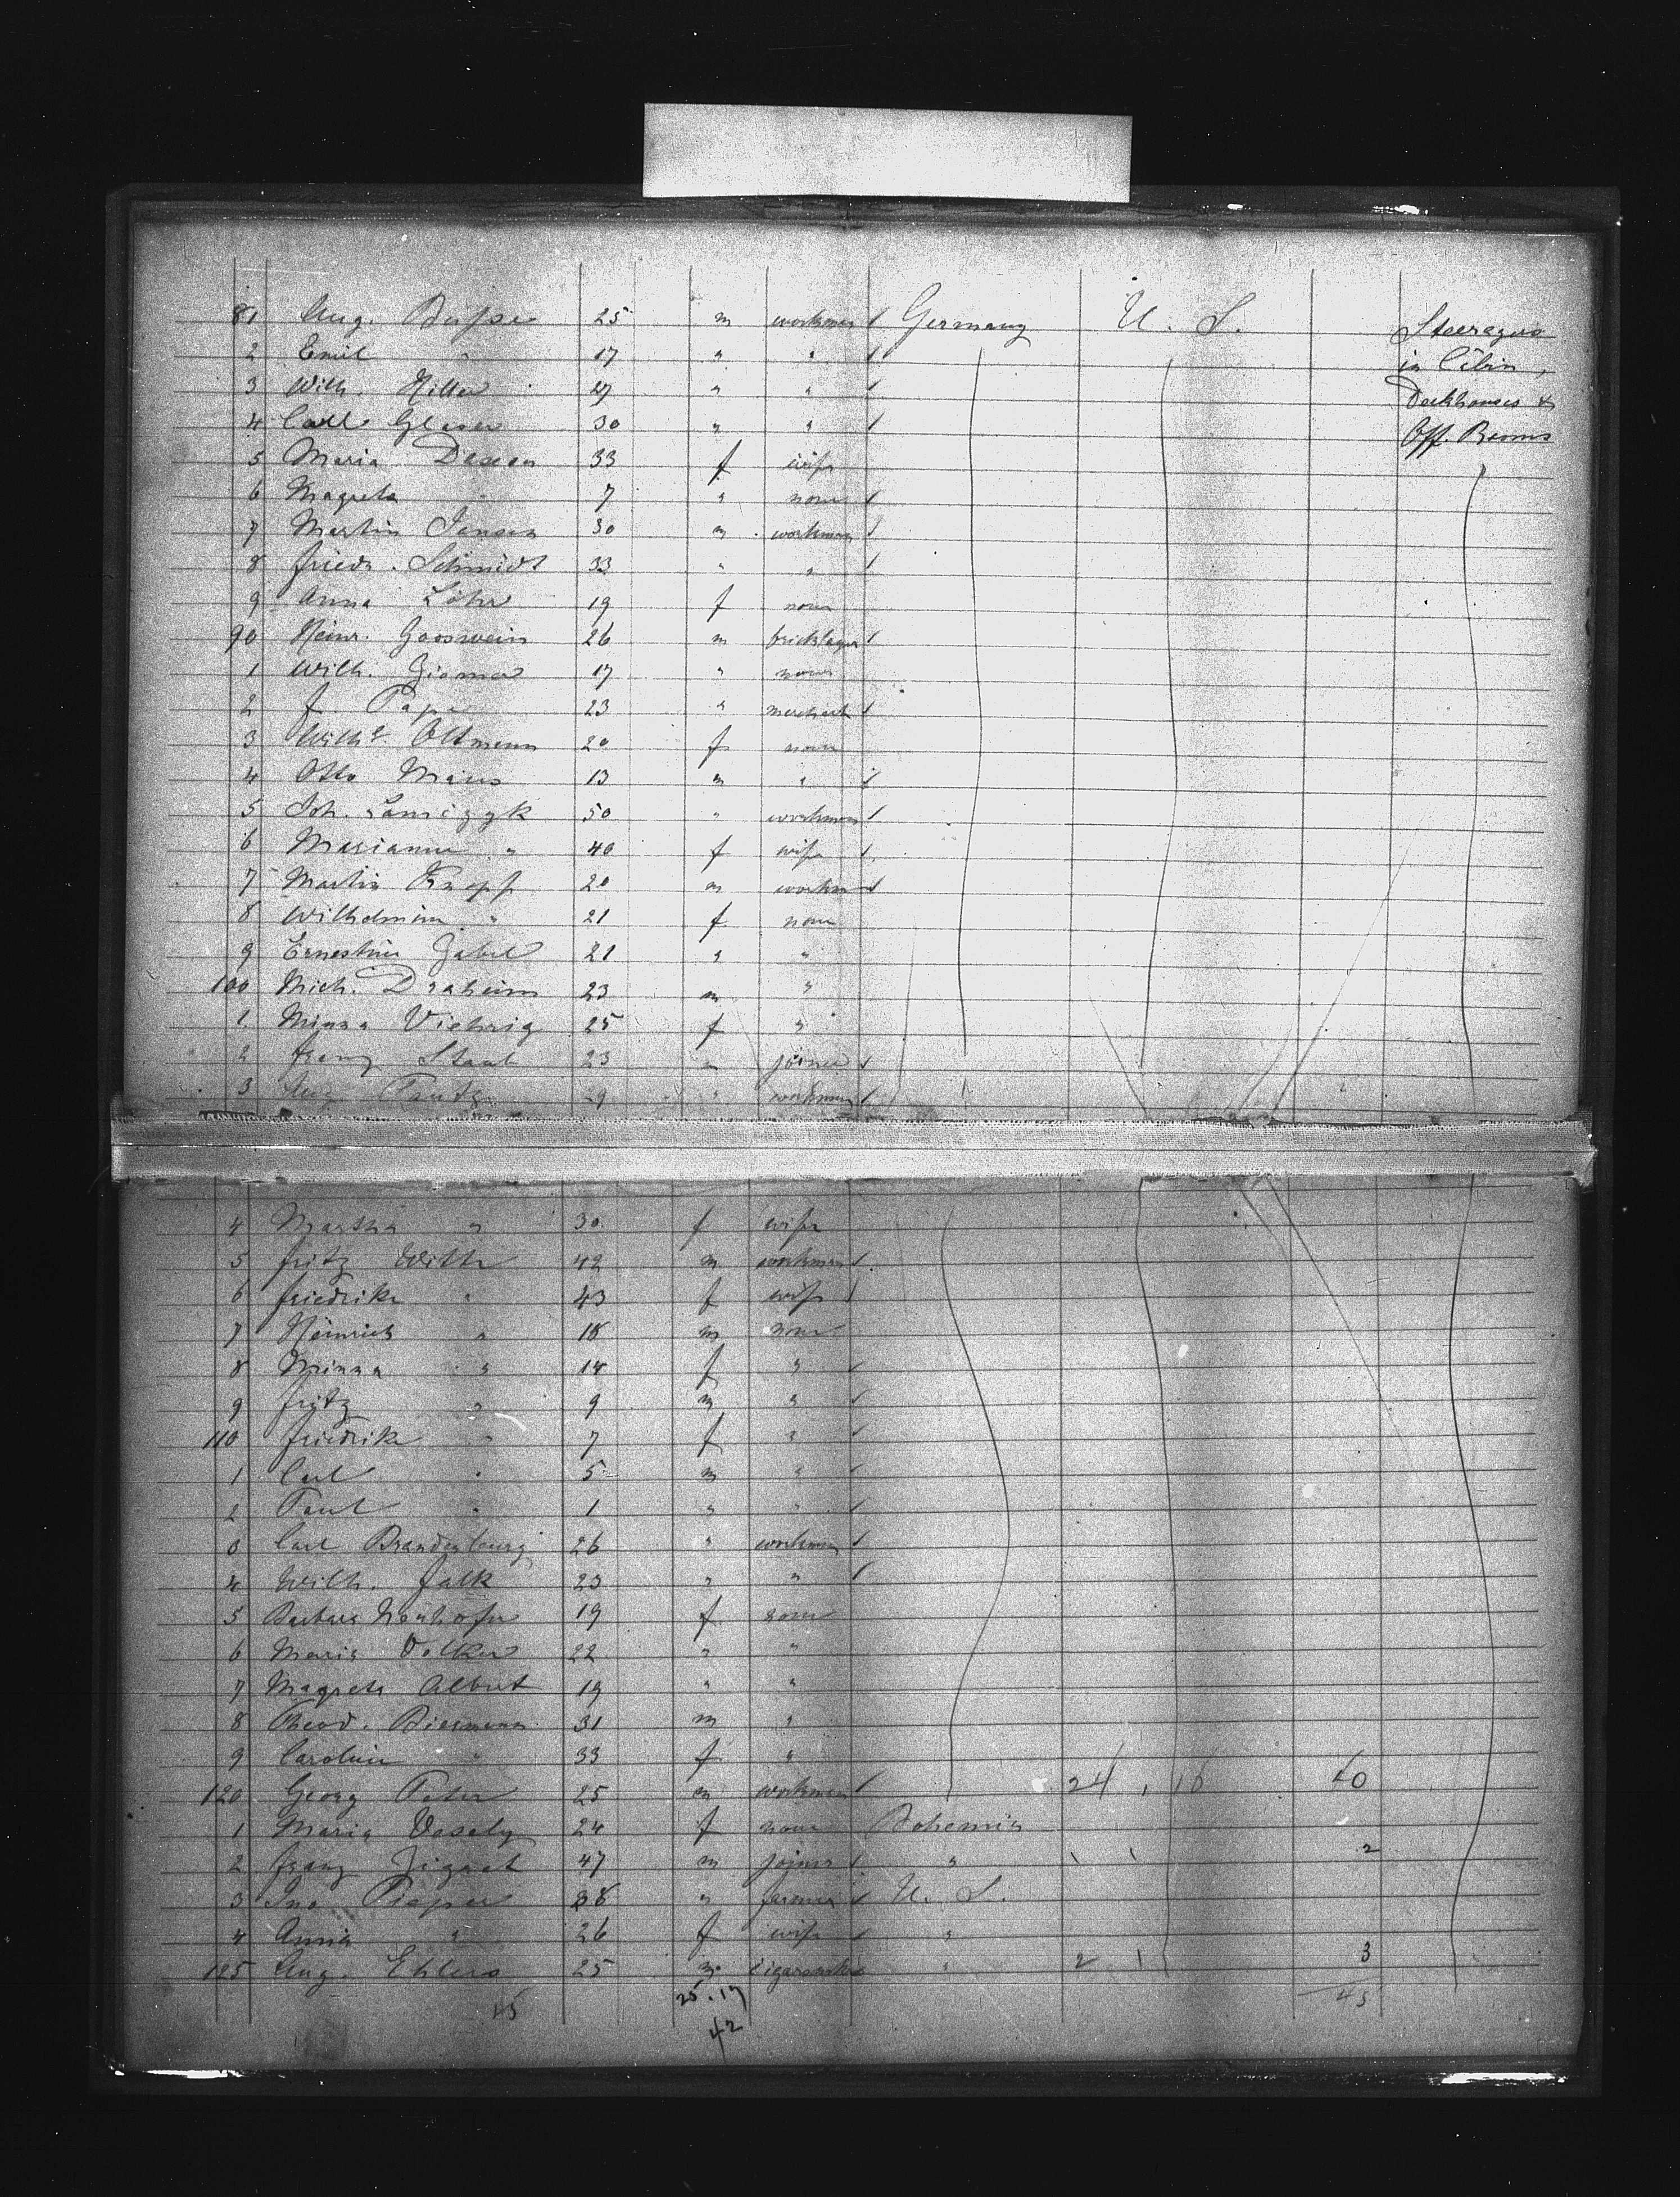 81 Aug. Busse 25 m workman Germany U. S. Steerages
2 Emil " 17 " " in Cibin,
3 Wilh. Hiller 27 " " Deckhouses &
4 Carl Glaser 30 " " Off. Rooms
5 Maria 33 f wife
6 Magreta " 7 " none
7 Martin Jensen 30 m workman
8 Friedr. Schmidt 33 " "
9 Anna Löhr 19 f none
90 Heinr. Gooswein 26 m bricklayer
1 Wilh. 17 " none
2 F. Pape 23 " merchant
3 Wilhe. Oltmann 20 f none
4 Otto 13 m "
5 Joh. 50 " workman
6 Marianna " 40 f wife
7 Martin Knopf 20 m workm
8 Wilhelmine " 21 f none
9 Ernestine Zabel 21 " "
100 Mich. Draheim 23 m "
1 Minna Viehrig 25 f "
2 Franz Staab 23 m joiner
3 Aug. 29 " workman
4 Martha " 30 f wife
5 Fritz Witte 42 m workman
6 Friedrike " 43 f wife
7 Heinrich " 18 m none
8 Minna " 14 f "
9 Fritz " 9 m "
110 Friedrike " 7 f "
1 Carl " 5 m "
2 Paul " 1 " "
3 Carl Brandenburg 26 " workman
4 Wilh. Falk 23 " "
5 Barbara 19 f none
6 Maria Volker 22 " "
7 Magreta Albert 19 " "
8 Theod. Biermann 31 m "
9 Caroline " 33 f "
120 Georg Peter 25 m workman 24 , 16 40
1 Maria Vesely 24 f none Bohemia
2 Franz 47 m joiner " 1 1 2
3 Jno. Pieper 38 " farmer U. S.
4 Annie " 26 f wife "
125 Aug. Ehlers 25 m " 2 1 3
45 25.17 45
42